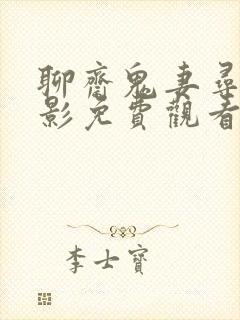 聊齋鬼妻尋
影免費觀看
李士寶